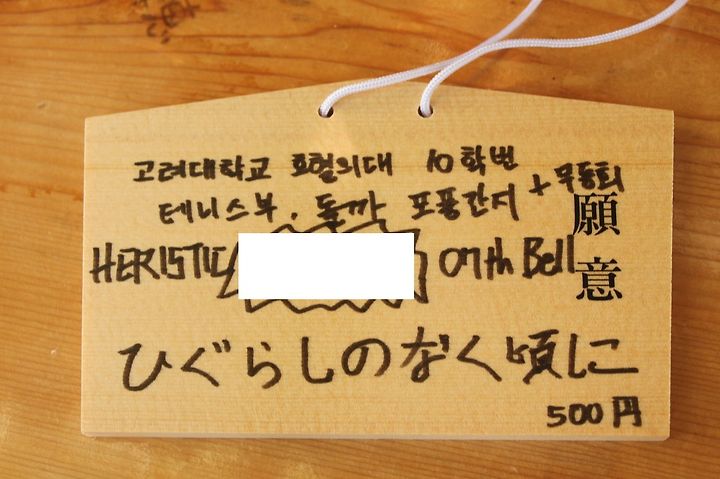 고려대학교 호혈의대 10학번
테니스부. 돌까 포풍간지 + 무통퇴
願意
HERISTIC 07th Bell
ひぐらしのなく頃しに
500円